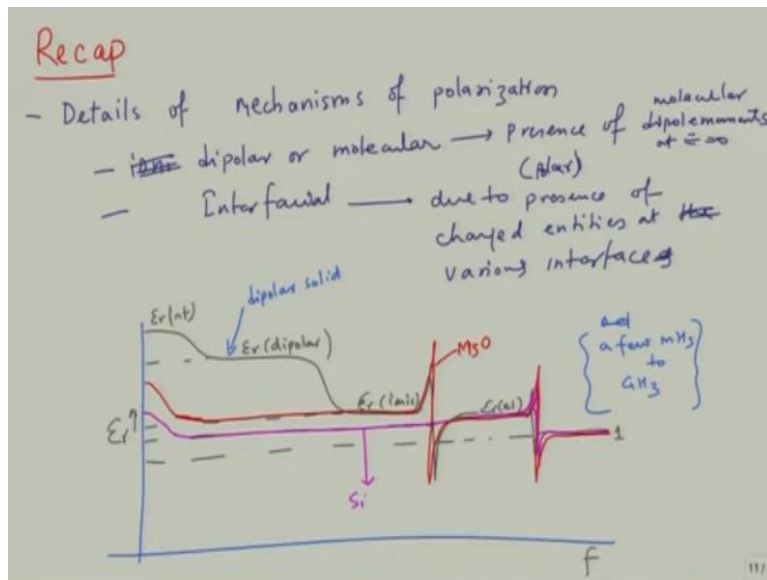 Recap
- Details of mechanisms of polarization
- dipolar or molecular → Presence of molecular dipolemoments at E=0
(Polar)
- Interfacial — due to presence of
charged entities at
various interfaces
dipolar solid
Er(int)
Er(dipolar)
Er(ionic)
Er(el)
MgO
a few mHz
to
GHz
Er↑
1
Si
f